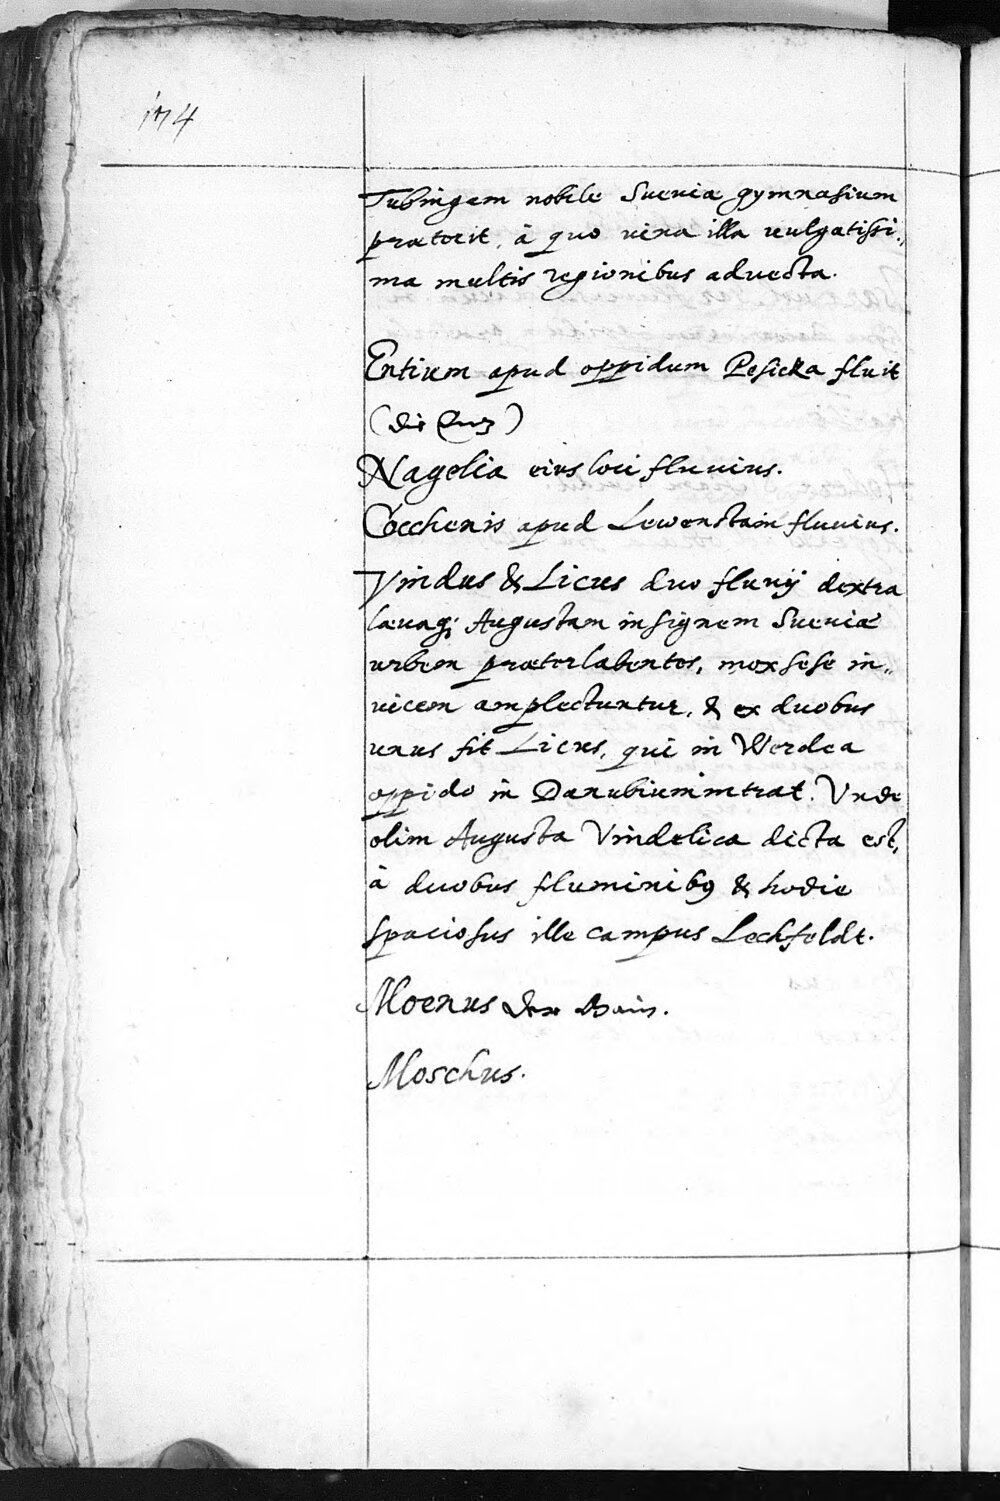 174
Tubingam nobile Sueuiæ gymnasium
præterit, à quo vina illa vulgatissi-
ma multis regionibus aduecta.
Entium apud oppidum Pesicka fluit
(die Entz)
Nagolia eius loci fluuius.
Coccheris apud Lewenstain fluuius.
Vindus & Licus duo fluuij dextra
læuaq; Augustam insignem Sueuiæ
urbem præterlabentes, mox sese in-
uicem amplectuntur, & ex duobus
unus fit Licus, qui in Werdea
oppido in Danubium intrat. Vnde
olim Augusta Vindelica dicta est,
à duobus fluminibq & hodie
spaciosus ille campus Lechfeldt.
Moenus der Main.
Moschus.